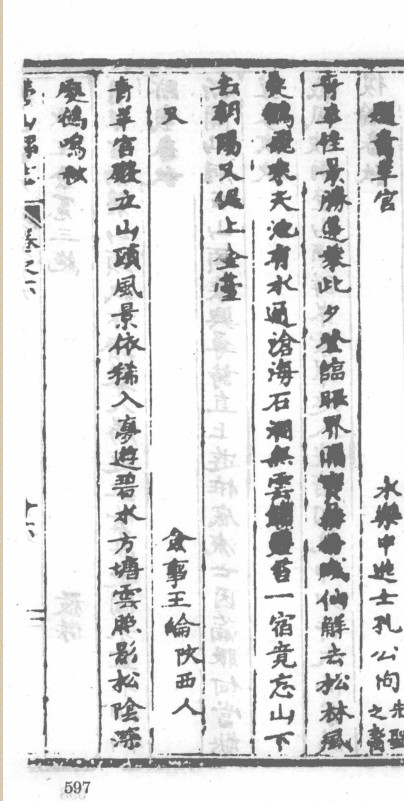 題青羊宮
永樂中進士孔公恂先聖之裔
青羊佳景勝蓬萊此夕登臨眼界開仙解去松林風
鶴夜來天池有水通滄海石洞無雲苔一宿竟忘山下
去朝陽又促上金臺
又
僉事王綸陜西人
青羊宮殿立山頭風景依稀入夢遊碧水方塘雲照影松陰深
處鶴鳴秋
營山縣志
卷之六
十六
597